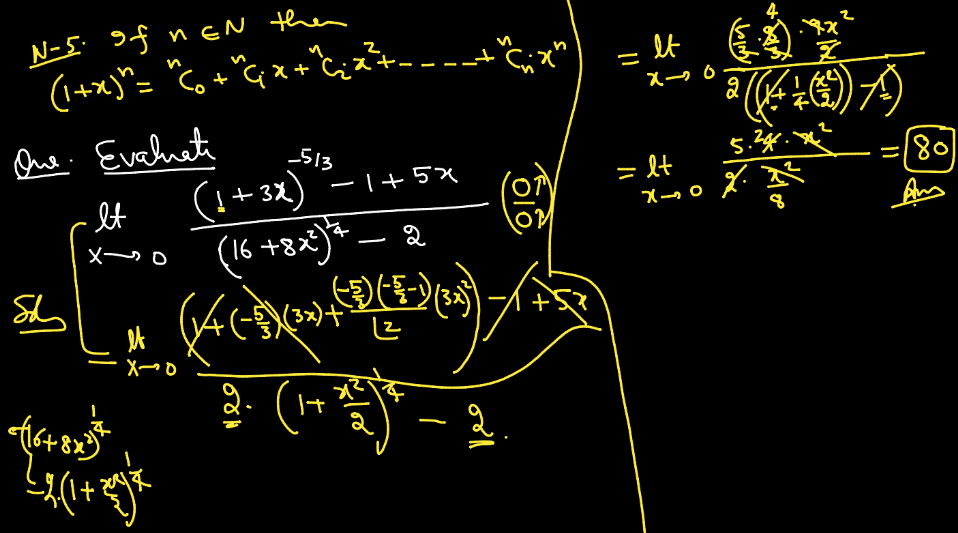 N-5. If n ∈ N then
(1+x)^n = ^nC_0 + ^nC_1 x + ^nC_2 x^2 + - - - - - + ^nC_n x^n
Que. Evaluate
lt x→0 ((1+3x)^(-5/3) - 1 + 5x) / ((16+8x^2)^(1/4) - 2) (0↑/0↑)
Sol
= lt x→0 ((1 + (-5/3)(3x) + ((-5/3)(-5/3 - 1)/⌊2)(3x)^2) - 1 + 5x) / (2·(1 + x^2/2)^(1/4) - 2.
(16+8x^2)^(1/4)
2.(1 + x^2/2)^(1/4)
= lt x→0 ((5/3 · 8/3) · 9x^2/2) / (2((1 + 1/4(x^2/2)) - 1)) 4
= lt x→0 (5·4·x^2) / (2· x^2/8) = 80 2
Ans